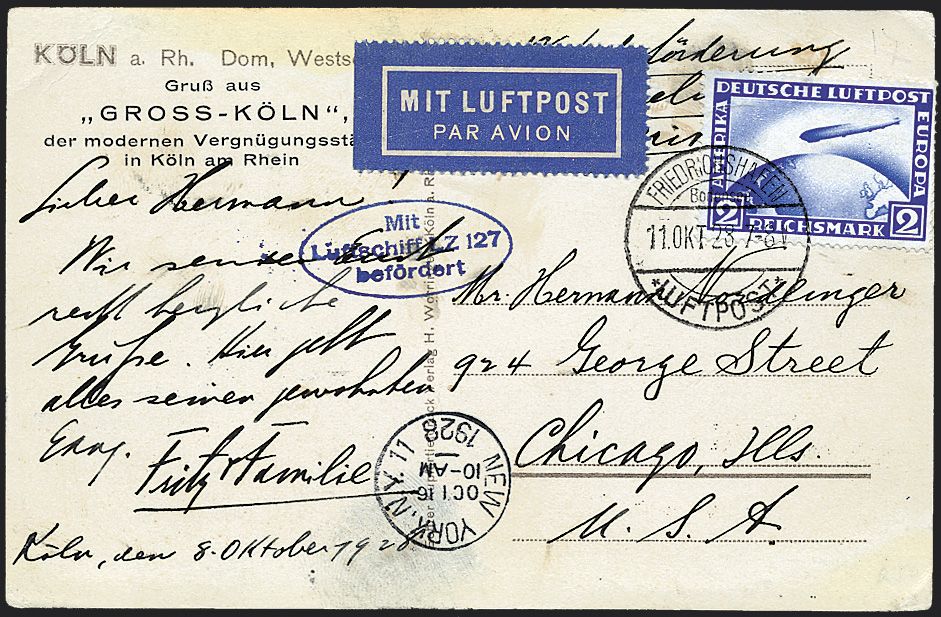 KÖLN a. Rh. Dom, Wests
Gruß aus
„GROSS-KÖLN“,
der modernen Vergnügungsstä
in Köln am Rhein
MIT LUFTPOST
PAR AVION
förderung
DEUTSCHE LUFTPOST
AMERIKA
EUROPA
2 REICHSMARK 2
FRIEDRICHSHAFEN
11.OKT 28.7-8V
*LUFTPOST*
Mit
Luftschiff LZ 127
befördert
Lieber Hermann!
Wir senden Euch
recht herzliche
Grüße. Hier geht
alles seinen gewohnten
Gang.
Fritz + Familie
Köln, den 8. Oktober 1928
Mr. Hermann Nördlinger
924 George Street
Chicago, Ills.
U. S. A.
NEW YORK, N.Y. 11
OCT 16
10-AM
1928